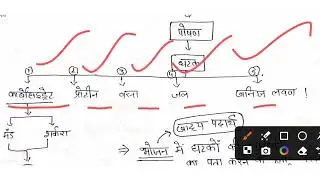 पोषण
घटक
① ② ③ ④ ⑤
कार्बोहाइड्रेट प्रोटीन वसा जल खनिज लवण !
मंड शर्करा
खाद्य पदार्थ
⇒ भोजन में घटकों
का पता करना